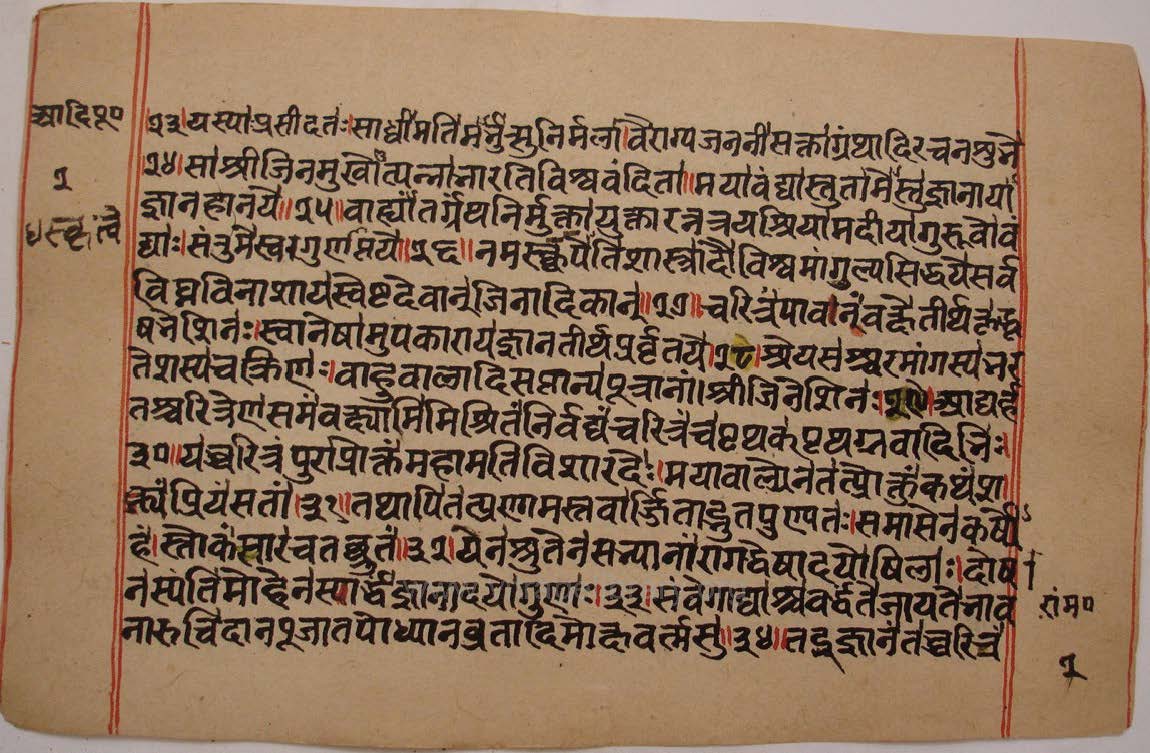 आदिपु०
२
२३।यस्याप्रसीदतः।साध्वीमतिर्मर्मुत्सुनिर्मला।वैराग्यजननीसक्ताग्रंथादिरचनशुभे
२४।साश्रीजिनमुखोत्पन्नाभारतिविश्ववंदिता॥मयावंद्यास्तुतामेस्तज्ञानाया
ज्ञानहानये॥२५॥वाह्यांतर्ग्रंथनिर्मुक्तायुक्तारत्नत्रयश्रियामदीयागुरुवोवं
द्याः।संतुमेस्वगुणाप्तये॥२६॥नमस्कृत्येतिशास्त्रादौविश्वमांगुल्यसिद्धयेसर्व
विघ्नविनाशायस्वेष्टदेवान्जिनादिकान्॥२७॥चरित्रंपावानंवक्ष्येतीर्थकृद्वृ
षभेशिनः।स्वान्येषामुपकारायज्ञानतीर्थप्रर्वृत्तये।२८।श्रेयसश्चरमांगस्यभर
तेशस्यचक्रिणः।वाहुवाल्यादिसप्तान्यपूचानां।श्रीजिनेशिन।२९।आद्यर्ह
तश्चरित्रेणसमंवक्ष्यामिमिश्रितंनिर्वद्यंचरित्रंचपृथकपृथग्भवादिभिः।
३०॥यच्चरित्रंपुराप्रोक्तंमहामतिविशारदैः।मयावाल्येनतत्प्रोक्तंकथंशा
क्यंप्रियंसतां।३१।तथापितत्प्रणामस्तवार्ज्जिताद्भुतपुण्यतः।समासेनकरिष्ये
हं।स्तोकंसारंचतच्छ्रुतं॥३२।येनश्रुतेनसभ्यानांरागद्वेषादयोषिलाः।दोष
नस्यंतिमोहेनस्पार्द्धंज्ञानादयोगुणाः।३३।संवेगाद्याश्चवर्द्धतेजायतेभाव
नारुचिदानपूजातपोध्यानव्रतादिमोक्षवर्त्मसु॥३४॥तद्ज्ञानंतच्चरित्रं
रांम०
२